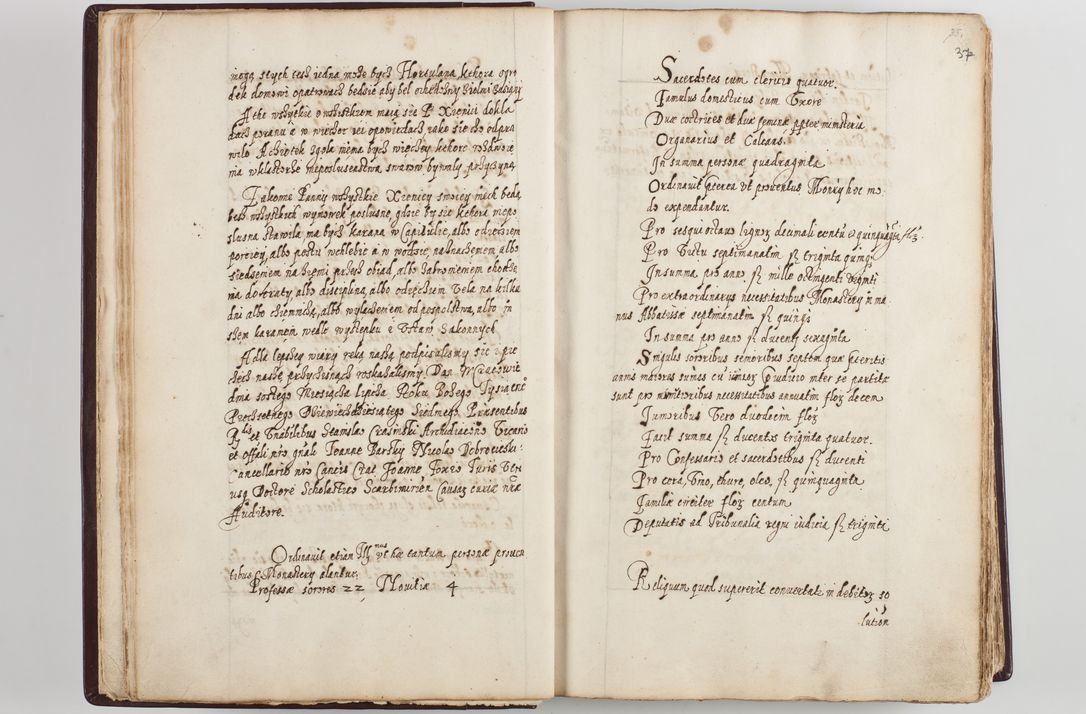 moga stych tesz iedna może bycz Hortulana, kthora ogro
dek domowi opatrowacz bedzie aby bel
A the wszytkie o wszistkiem maią się P Xienici dokla
dacz poranu a w wieczor iei opowiedacz iako się cho odpra
wilo
na wklasthorze nieposluseństwa, swarow bywaly przyczyną
Takowe Panny wszystkie Xienicy swoiey niech bedą
bess wszystkich wymowek poslusne, gdzie by sie kthora niepo
slusna stawila ma bycz karana w Capithulic, albo odięciem
porciey, albo postu wchlebie a w wodzie, naznaczeniem albo
siedzeniem na ziemi przesz obiad, albo zabronieniem chodze
nia do kraty, albo disciplina, albo odięcziem Vela na kilka
dni albo ciemnicą, albo wylączeniem od pospolstwa, albo in
szem karaniem wedle wystepku z Vstaw zakonnych
A dla lepszey wiary reką naszą podpisalismy sie i pie
czecz naszę przyczisnącz roskazalismy. Dan W Cracowie
dnia sostego Miesiącza Lipcha Roku Bożego Tysiącnº
Pięchsethnego Dziewiecdziesiatego Siodmego, Praesentibus
Rdis et Vnabilibus Stanislao Crasinski Archidiacono Vicario
et Offali nro gnali Joanne Barski Nicolao Dobrocieski
Cancellario nro Canccis Crac Joanne Foxio Juris Vtri
usq Doctore Scholastico Scarbimirien Causaz curiae nrae
Auditore.
Ordinavit etiam Illmus vt hae tantum personae proven
tibus Monastery alantur.
Professae sorores 22 Novitiae 4
35.
37
Sacerdotes cum clericis quatuor.
Famulus domesticus cum Vxore
Duae coctrices et duae feminae ppter ministeria
Organarius et Calcans.
In summa personae quadraginta
Ordinavit pterea vt proventus Monrij hoc mo
do expendantur.
Pro sesqui octavo lignoz decimali centu et quinquaginta floz.
Pro Victu septimanatim fl triginta quinqz
In summa pro anno fl mille octingenti viginti
Pro extraordinarijs necessitatibus Monastery in ma
nus Abbatissae septimanatim fl quinqz
In summa pro anno fl ducenti sexaginta
Singulis sororibus senioribus septem quae pteritis
annis maiores sumas cu iunioz praeiudicio inter se partitae
sunt pro minutioribus necessitatibus annuatim floz decem
Junioribus Vero duodecim floz
Facit summa fl ducentos triginta quatuor.
Pro Confessario et sacerdotibus fl ducenti
Pro cera, Vino, thure, oleo, fl quinquaginta.
Familiae circiter floz centum
Deputatis ad Tribunalia regni iudicia fl triginta
Reliquum quod supererit convertat in debitoz so
lution